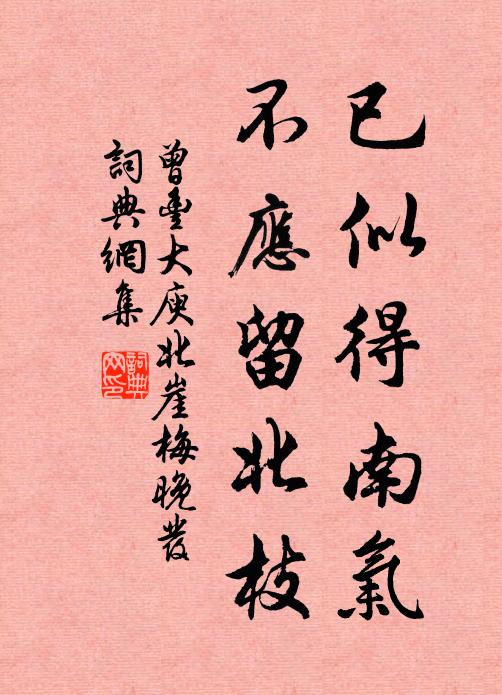 已似得南氣
不應留北枝
曾豐大庾北崖梅晚發
詞典網集
詞典
网印